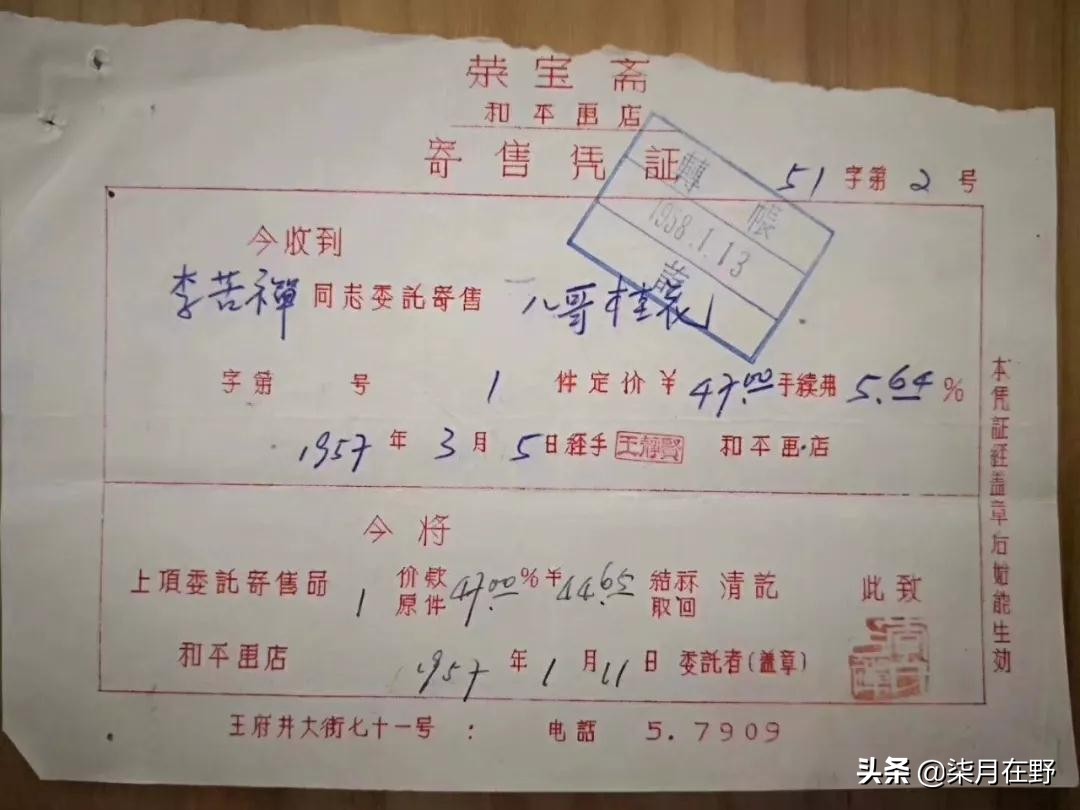 荣宝斋
和平画店
寄售凭証
51字第2号
轉帳
1958.1.13
今收到
李苦禅同志委託寄售 八哥
字第 号 1 件定价¥47.00手續弗5.64%
1957年3月5日経手 王靜賢 和平画店
今将
上項委託寄售品 1 价欵 原件 47.00%¥44.65 結 取回 清訖 此致
和平画店 1957年1月11日 委託者(盖章)
王府井大街七十一号 : 电話 5.7909
本凭証経盖章后始能生効
头条 @柒月在野